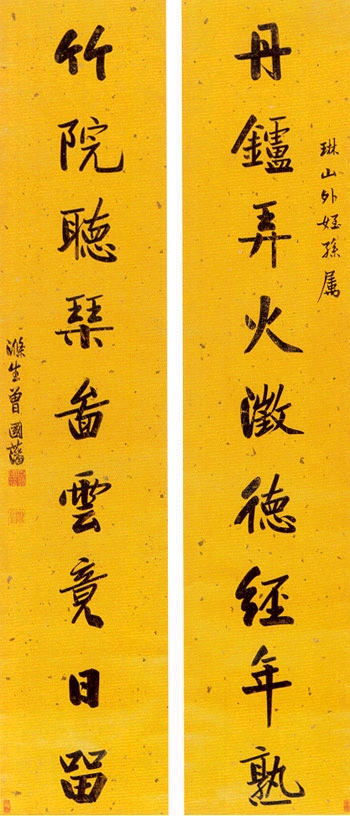 琳山外姪孫属
丹鑪弄火澂德經年熟
竹院聽琴雲竟日畱
滌生曾國藩